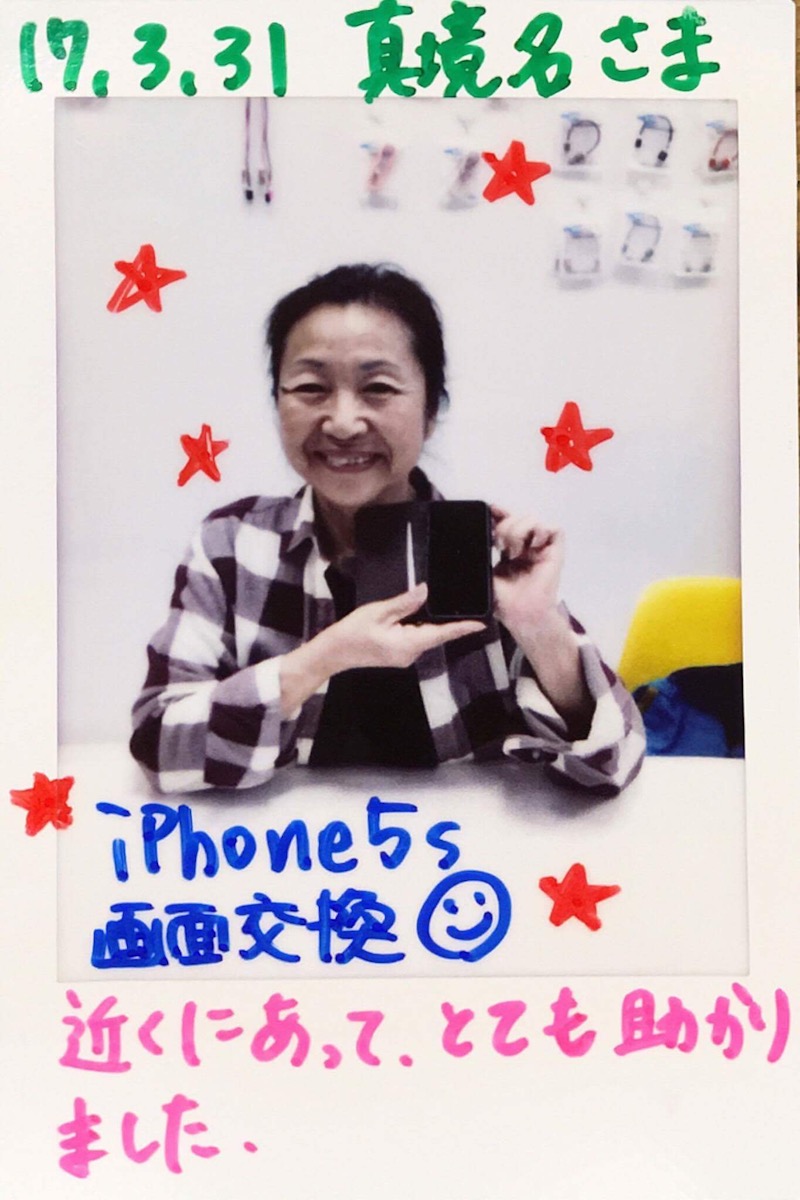 17.3.31 真境名さま
iPhone5s
画面交換
近くにあって、とても助かり
ました.